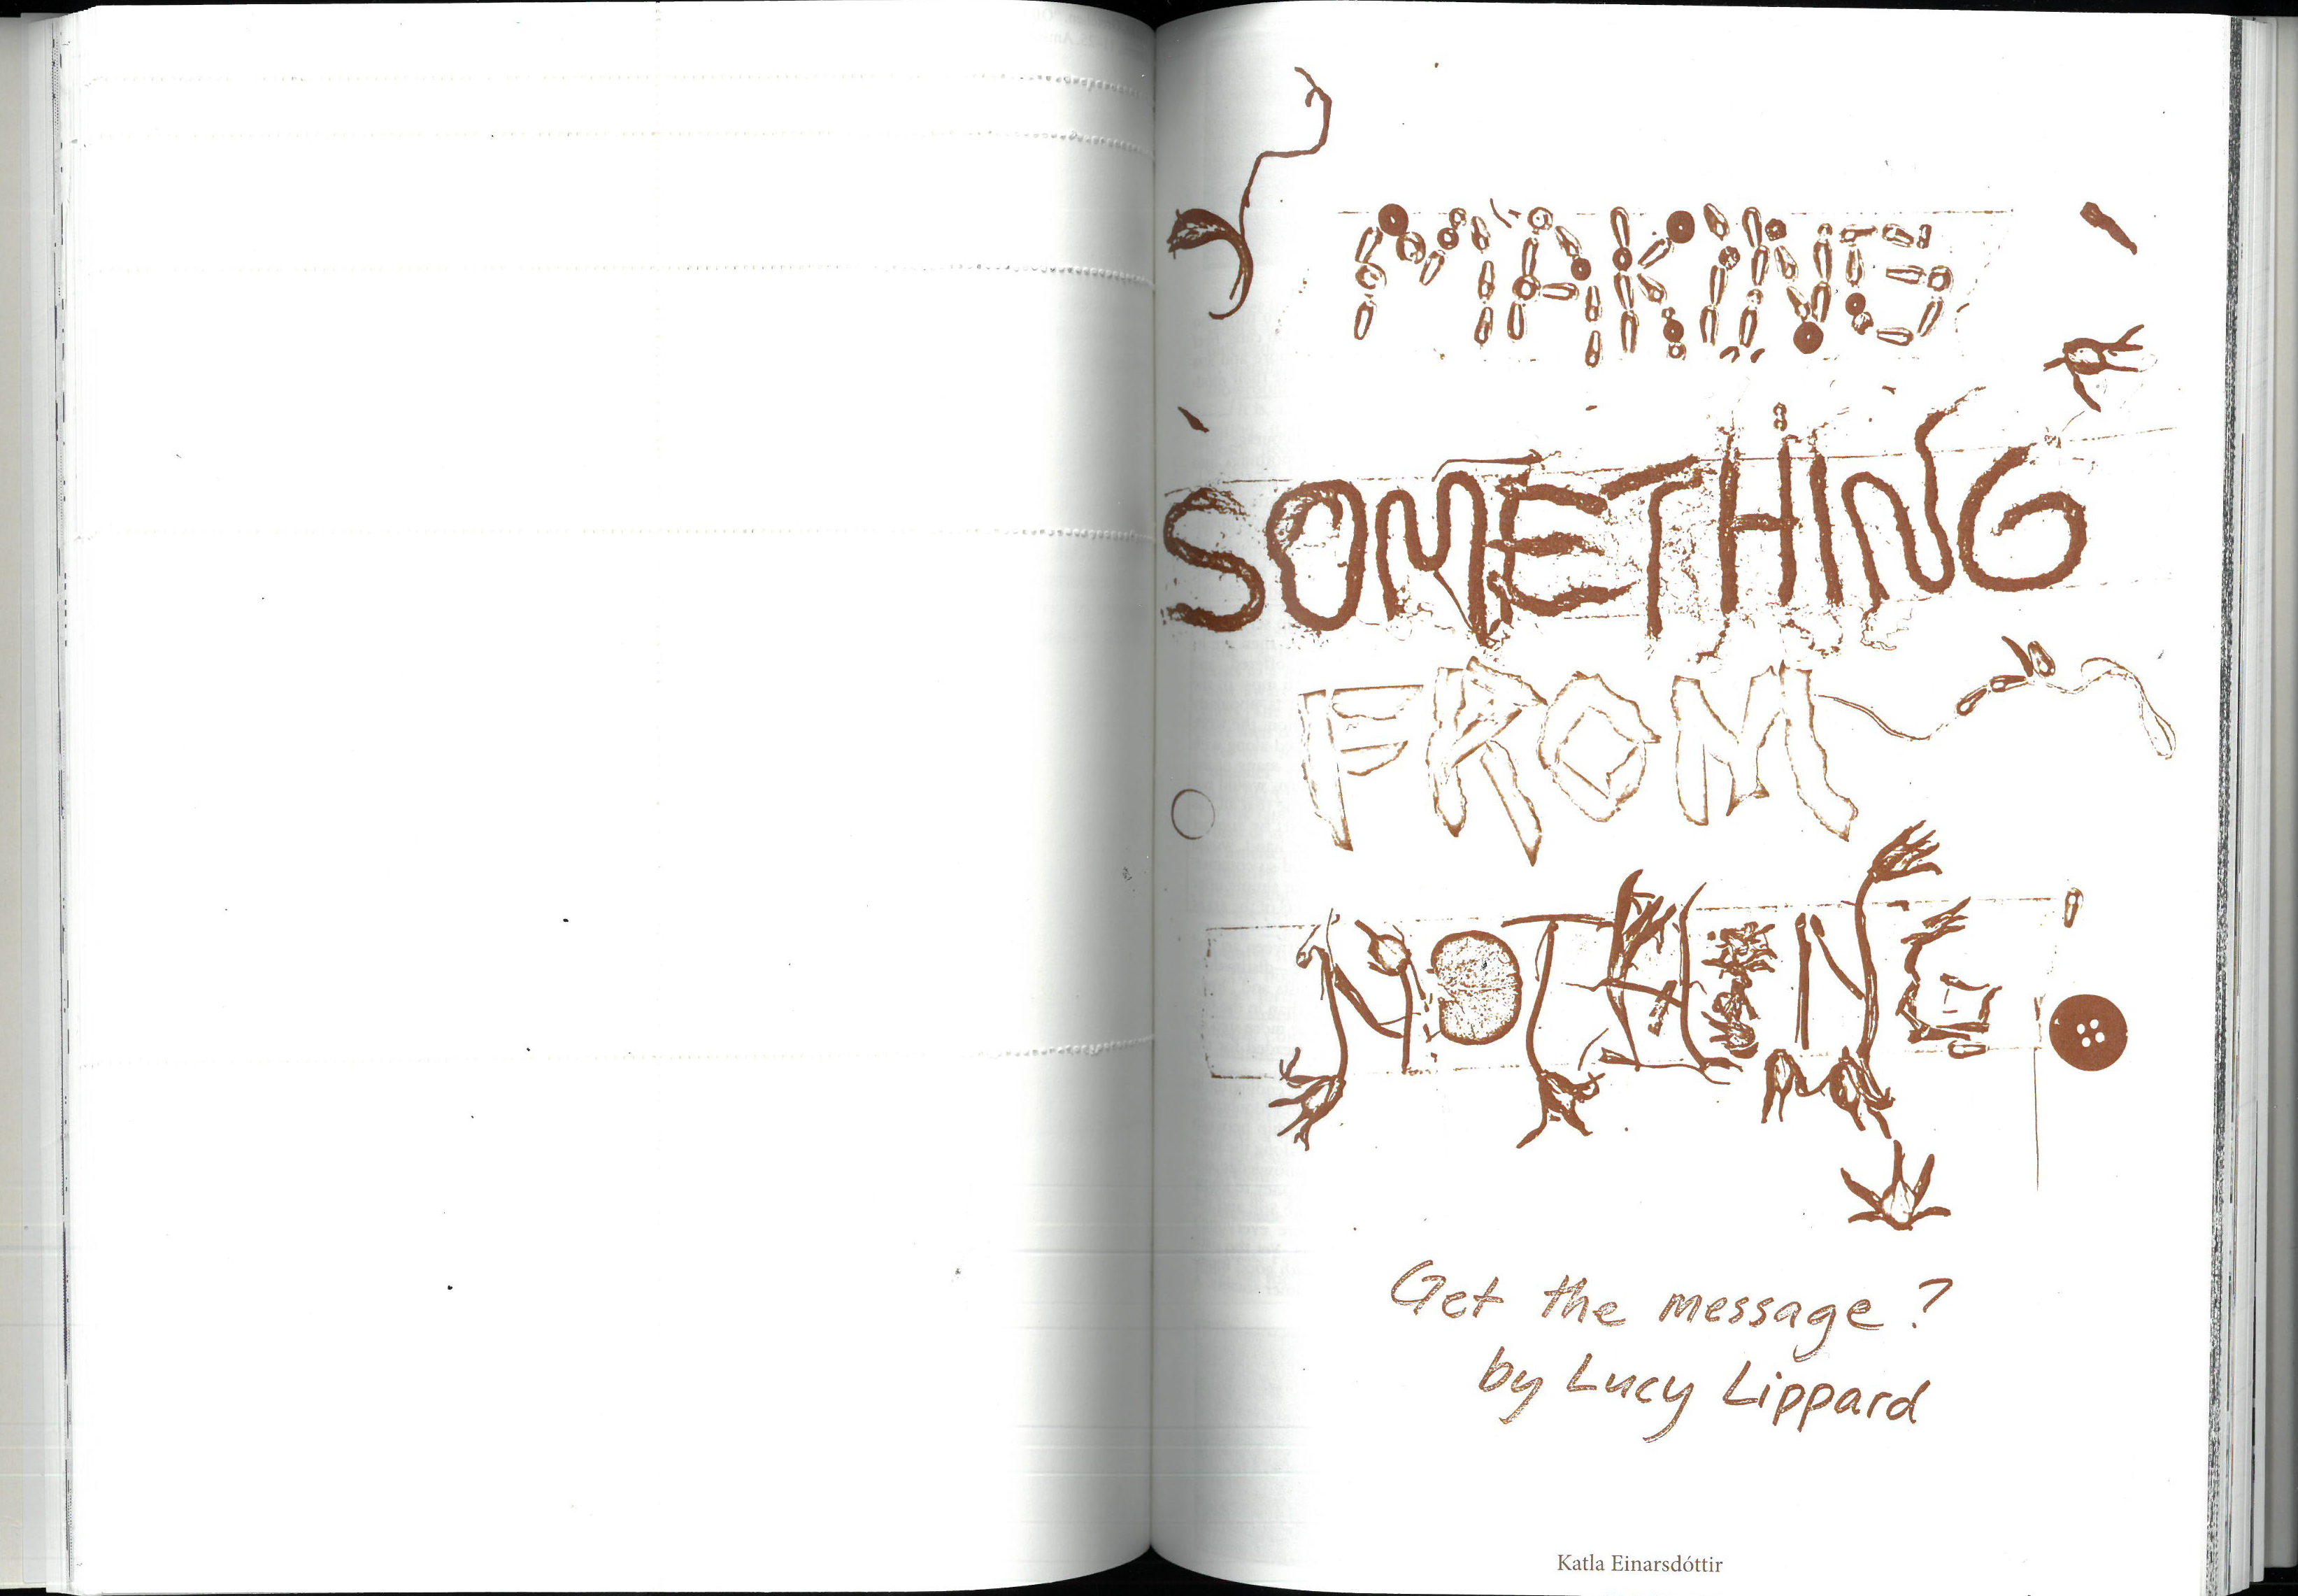 MAKING
SOMETHING
FROM
NOTHING
Get the message?
by Lucy Lippard
Katla Einarsdóttir